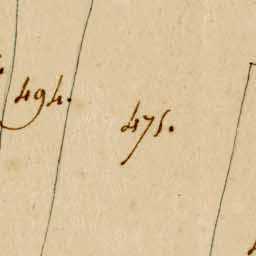 494.
475.